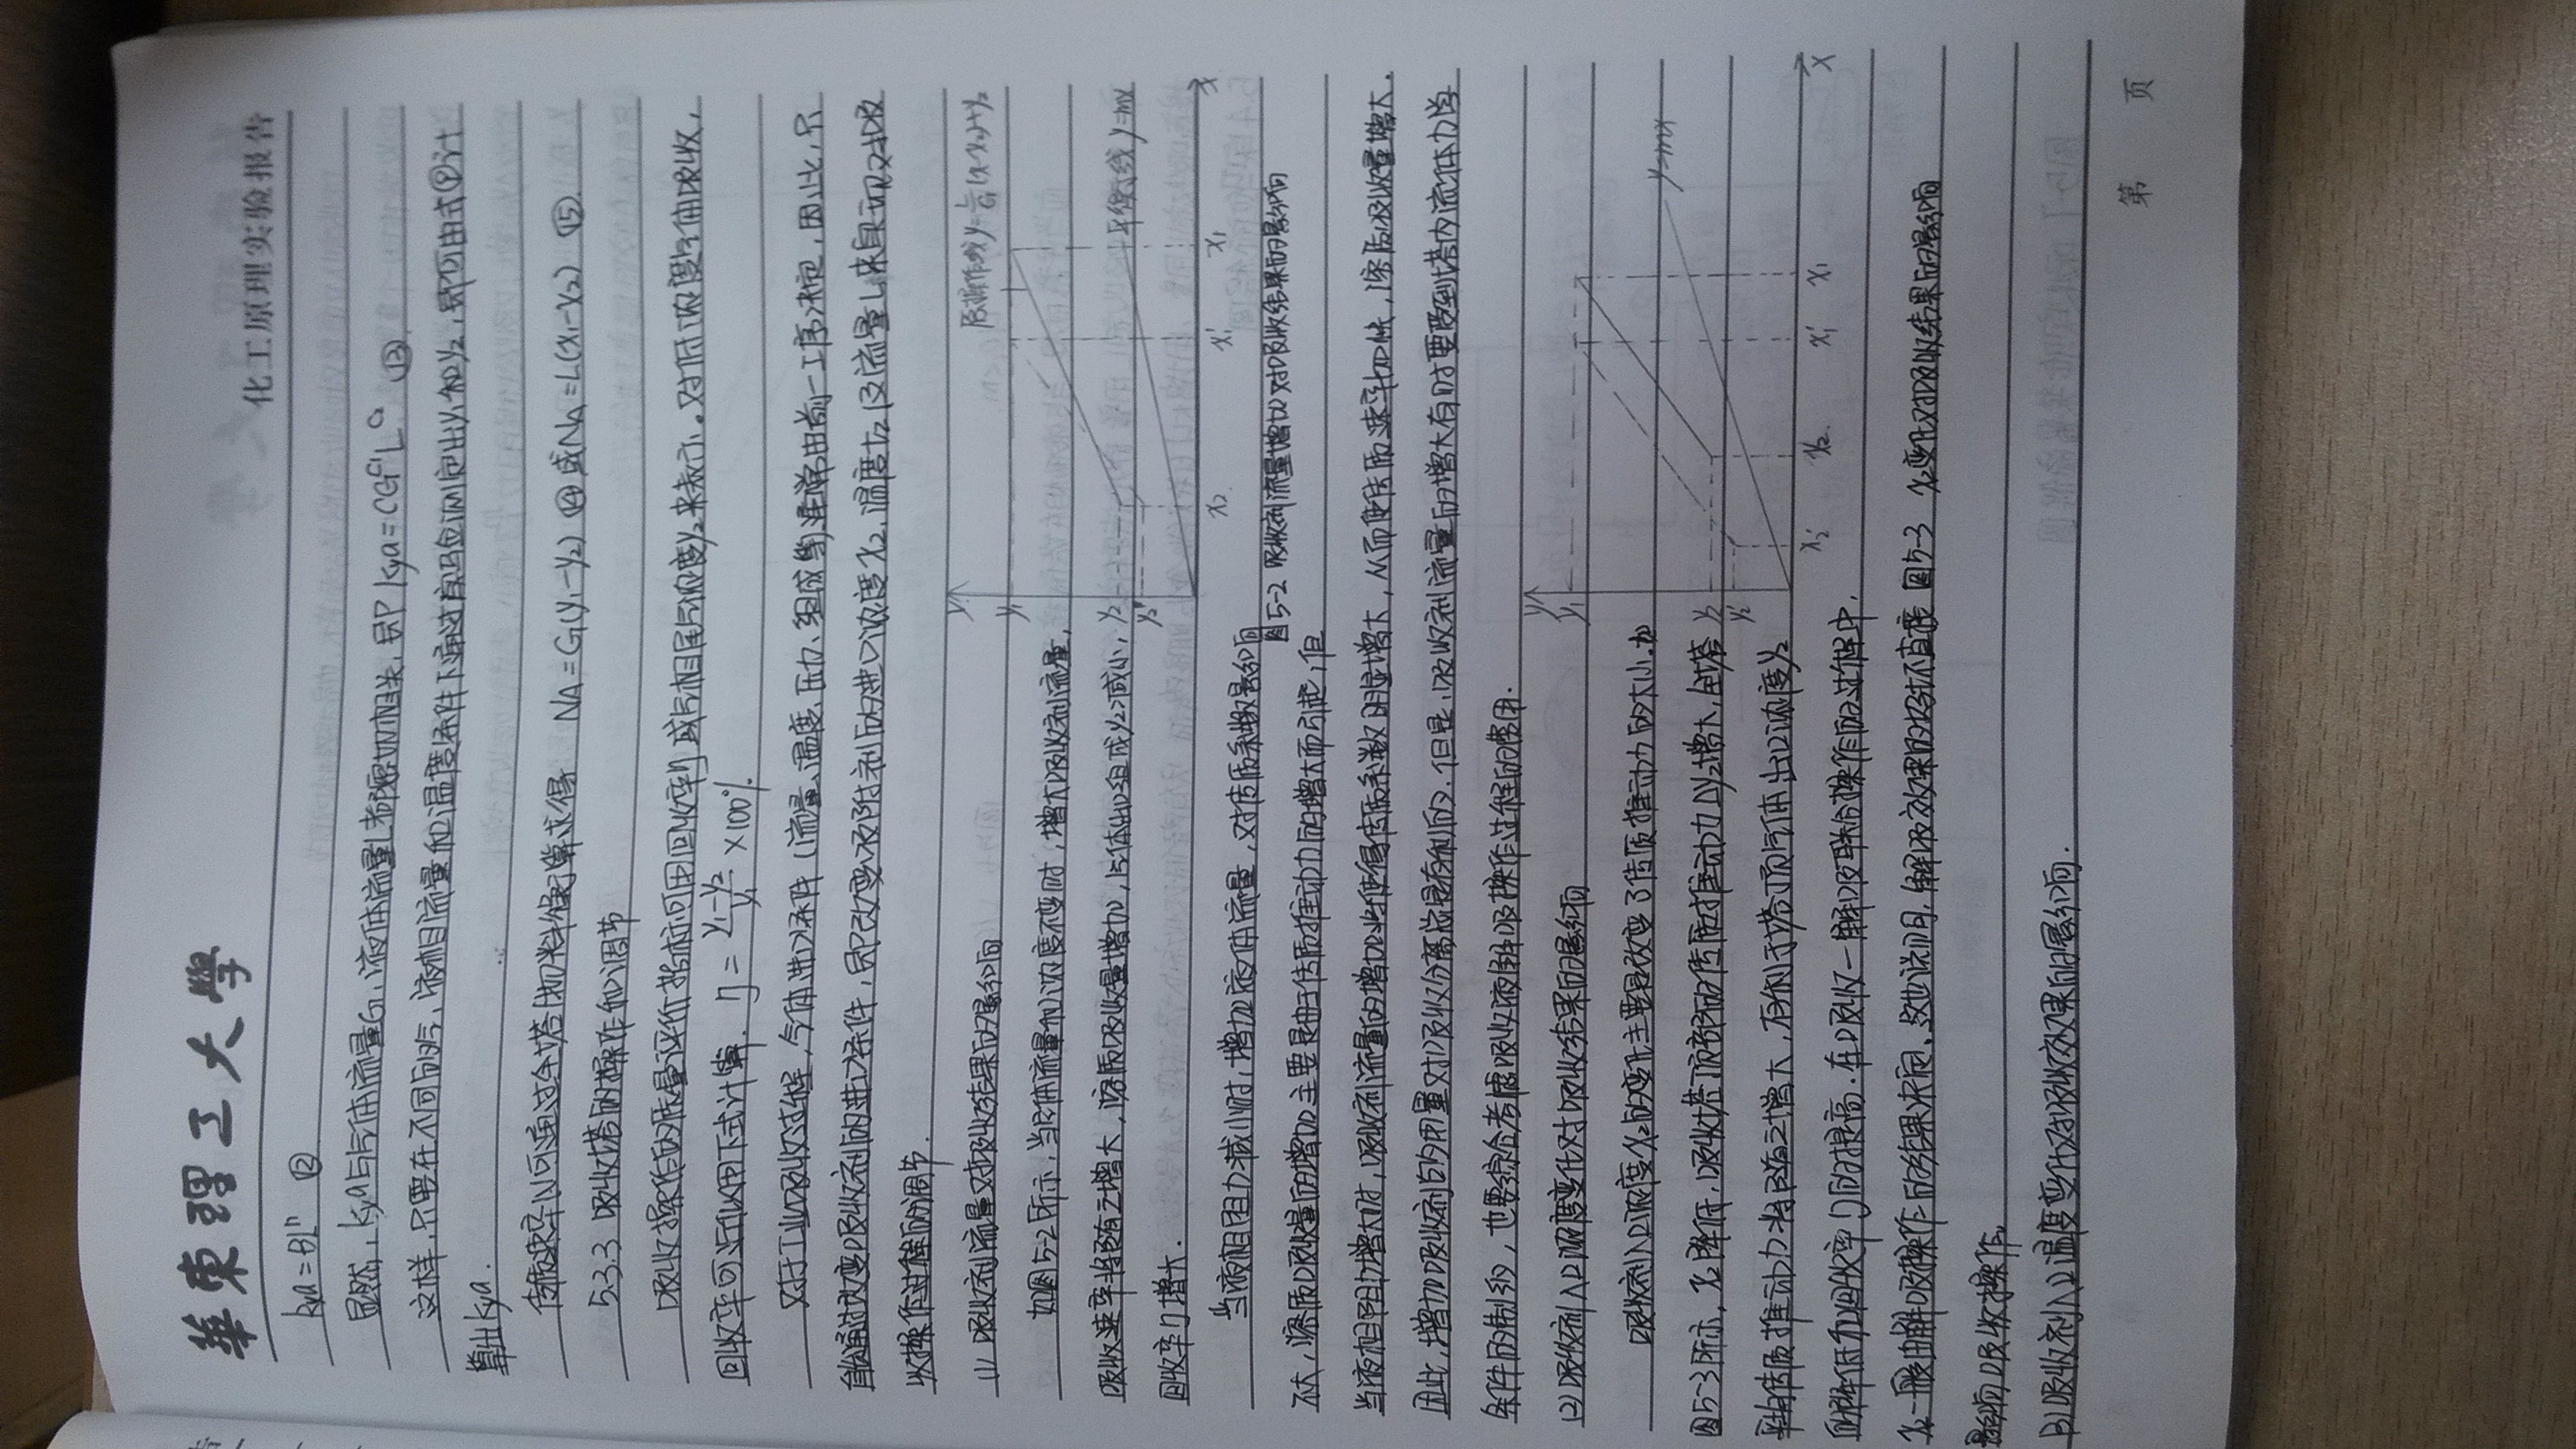 華東理工大學
化工原理实验报告
kya=BLⁿ ⑫
显然，Kya与气体流量G、液体流量L都密切相关，即 Kya=CGᵃLᵇ ⑬
这样，只要在不同的气、液相流量和温度条件下通过实验测定出y₁和y₂，即可由式⑨计
算出Kya.
传质速率N可通过全塔物料衡算求得 NA=G(y₁-y₂) ⑭ 或NA=L(x₁-x₂) ⑮
5.3.3 吸收塔的操作和调节
吸收操作的质量评价指标可用回收率η或气相尾气浓度y₂来表示。对低浓度气体吸收，
回收率可近似用下式计算. η=(y₁-y₂)/y₁×100%
对于工业吸收过程，气体进口条件（流量、温度、压力、组成等）通常由前一工序决定，因此，只
能通过改变吸收剂的进口条件，即改变吸附剂的进口浓度x₂，温度t₂及流量L来实现对吸
收操作过程的调节.
(1) 吸收剂流量对吸收结果的影响
如图5-2所示，当气体流量和浓度不变时，增大吸收剂流量，
吸收速率将随之增大，溶质吸收量增加，气体出口组成y₂减小，
回收率η增大.
y
原操作线y=L/G(x-x₂)+y₂
y₁
y₂
y₂'
平衡线 y=mx
x₂ x₁' x₁ x
图5-2 吸收剂流量增加对吸收结果的影响
当液相阻力减小时，增加液体流量，对传质系数影响
不大，溶质吸收量的增加主要是由于传质推动力的增大而引起，但
当液相阻力增大时，吸收剂流量的增加将使得传质系数明显增大，从而使传质速率加快，溶质吸收量增大.
因此，增加吸收剂的用量对吸收分离总是有利的. 但是，吸收剂流量的增大有时要受到塔内流体力学
条件的制约，也要综合考虑吸收液解吸操作过程的费用.
(2) 吸收剂入口浓度变化对吸收结果的影响
吸收剂入口浓度x₂的变化主要是改变了传质推动力的大小.如
图5-3所示，x₂降低，吸收塔顶部的传质推动力Δy₂增大，全塔
平均传质推动力将随之增大，有利于塔顶气体出口浓度y₂
的降低和回收率η的提高.在吸收—解吸联合操作的过程中，
x₂一般由解吸操作的结果决定，这也说明，解吸效果的好坏直接
影响吸收操作。
y
y₁
y=mx
y₂
y₂'
x₂' x₂ x₁' x₁ x
图5-3 x₂变化对吸收结果的影响
(3) 吸收剂入口温度变化对吸收效果的影响.
第 页